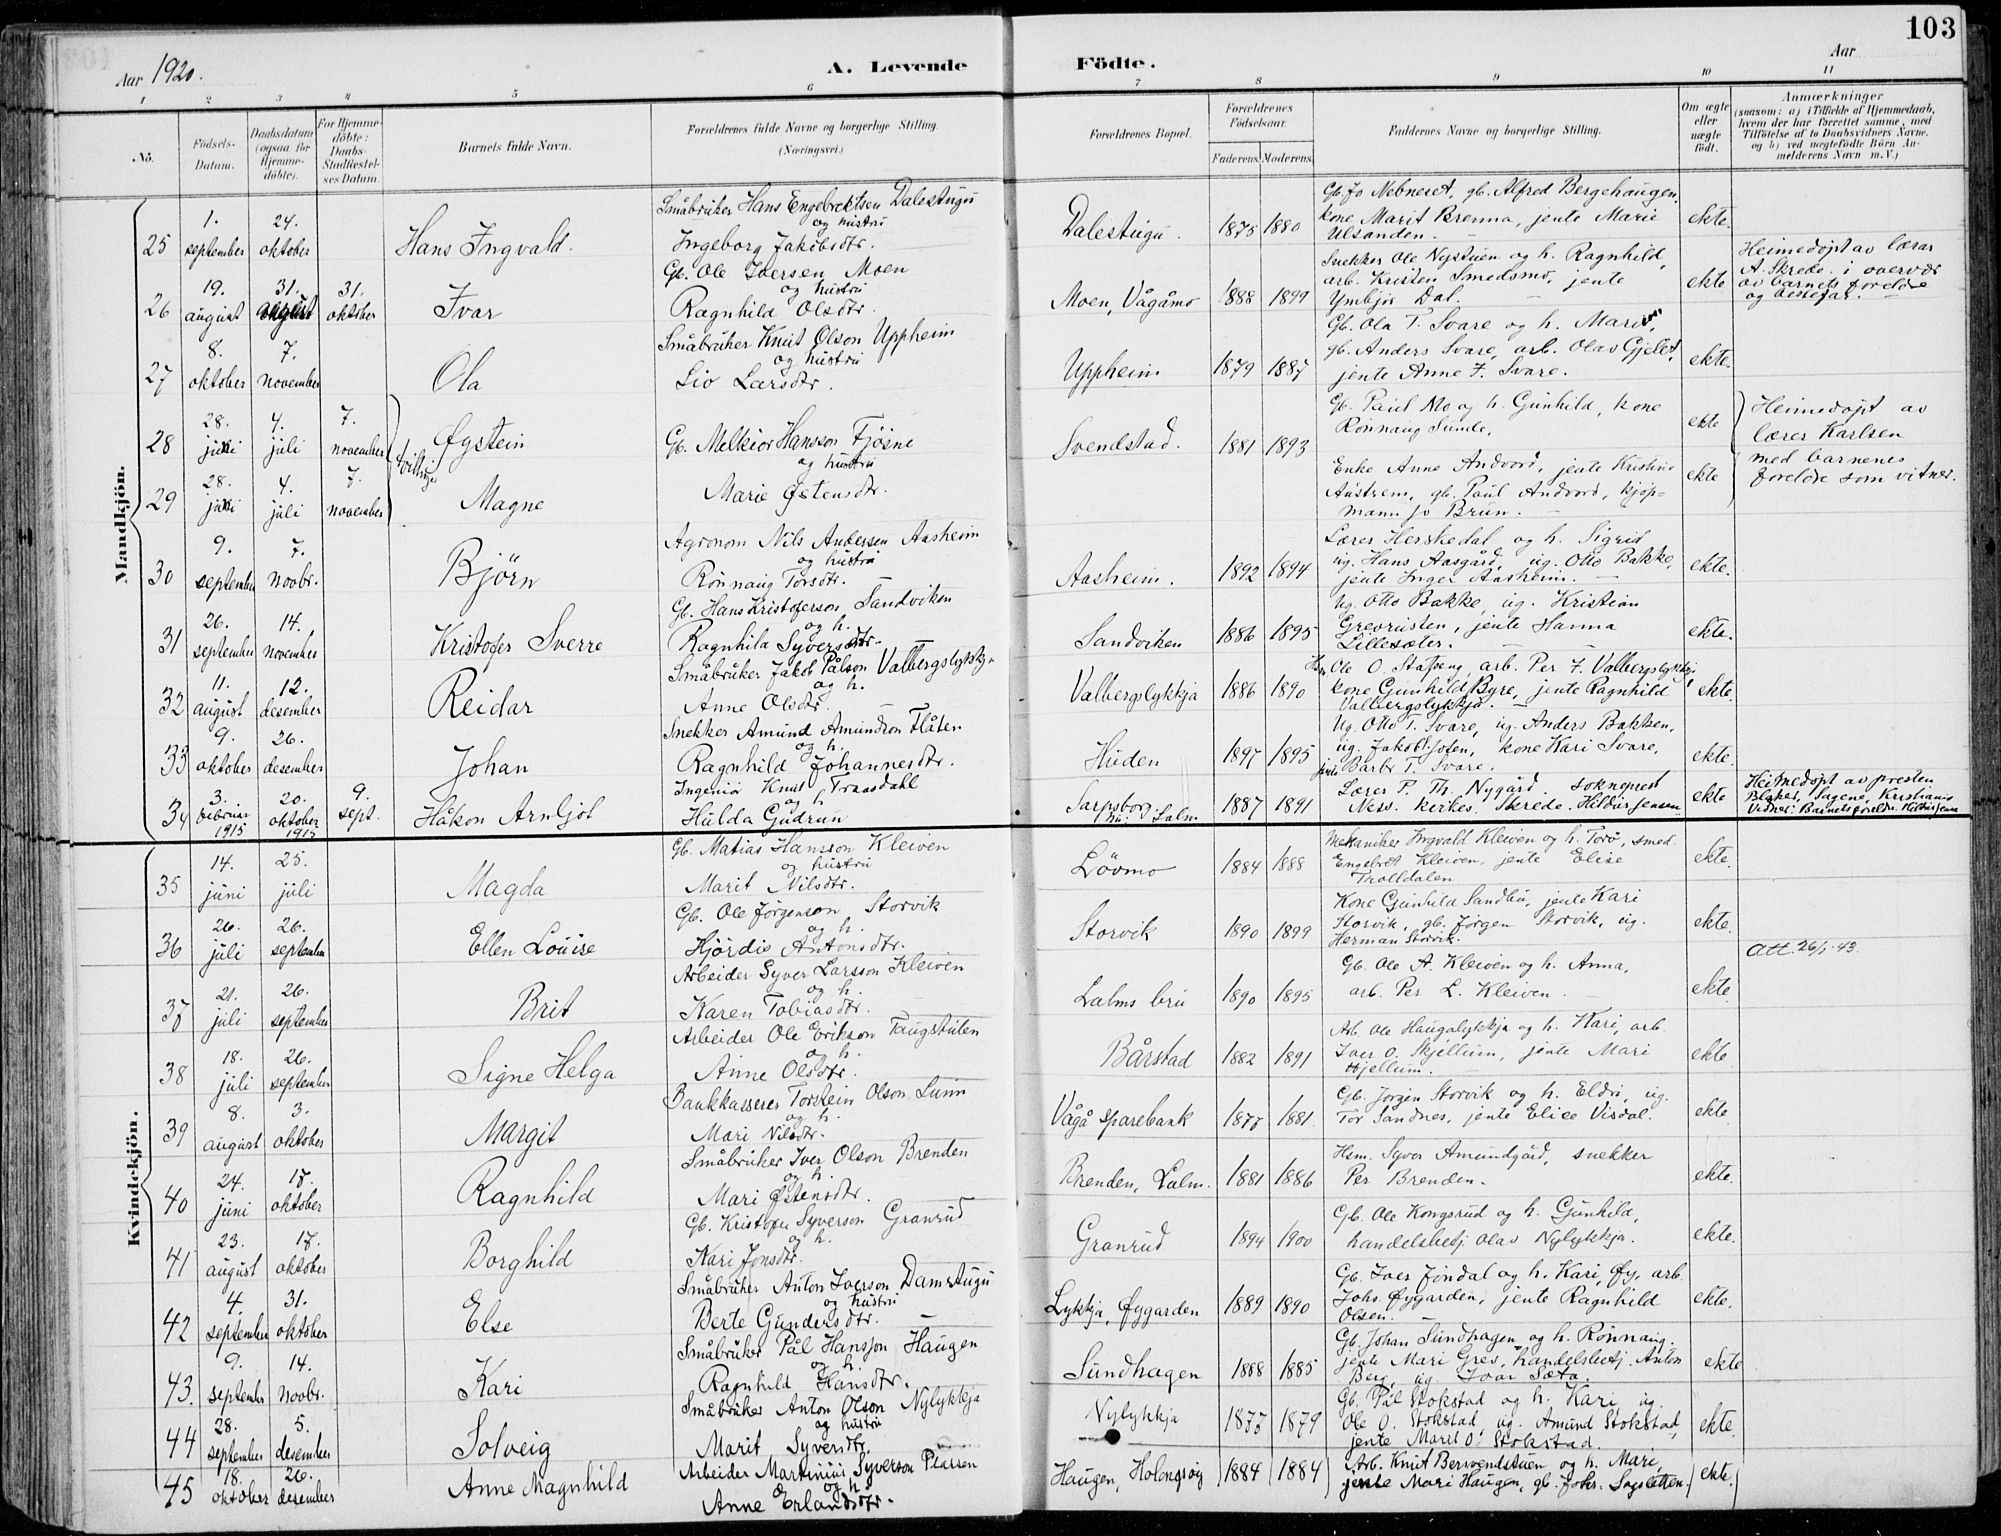 103
Aar 1920.
A. Levende Födte.
Aar
1 2 3 4 5 6 7 8 9 10 11
No.
Födsels-Datum.
Daabsdatum (ogsaa for Hjemme-döbte).
For Hjemme-döbte: Daabs-Stadfæstel-ses Datum.
Barnets fulde Navn.
Forældrenes fulde Navne og borgerlige Stilling. (Næringsvei.)
Forældrenes Bopæl.
Forældrenes Födselsaar.
Faderens. Moderens.
Faddernes Navne og borgerlige Stilling.
Om ægte eller uægte födt.
Anmærkninger
(saasom: a) i Tilfælde af Hjemmedaab,
hvem der har forrettet samme, med
Tilföielse af to Daabsvidners Navne.
og b) ved uægtefödte Börn An-
melderens Navn m.V.)
Mandkjön.
25 1. september 24. oktober Hans Ingvald. Småbruker Hans Engebrektsen Dalestugu og hustru Ingeborg Jakobsdtr. Dalestugu. 1875 1880 Gb. Jo Nebneset, gb. Alfred Bergehaugen, kone Marit Brenna, jente Marie Ulsanden. ekte.
26 19. august 31. 31. oktober Ivar Gb. Ole Iversen Moen og hustru Ragnhild Olsdtr. Moen, Vågåmo 1888 1899 Snekker Ole Nystuen og h. Ragnhild, arb. Kristen Smedsmo, jente Ymbjør Dal. ekte Heimedöpt av lærar A. Skrede i overvær av barnets foreldre og bestefar.
27 8. oktober 7. november Ola Småbruker Knut Olson Uppheim og hustru Siv Larsdtr. Uppheim 1879 1887 Gb. Ola T. Svare og h. Marit, gb. Anders Svare, arb. Olav Gjelet, jente Anne F. Svare. ekte.
28 28. juli 4. juli 7. november tvillinger Øystein Gb. Melkior Hansson Fjösne og hustru Marie Østensdtr. Svendstad. 1881 1893 Gb. Paul Mo og h. Gunhild, kone Rönnaug Sunde, ekte Heimedöpt av lærer Karlsen med barnenes foreldre som vitner.
29 28. 4. juli 7. november Magne Enke Anne Andvord, jente Kristine Austrem, gb. Paul Andvord, kjöp-mann Jo Brun. ekte
30 9. september 7. novbr. Björn Agronom Nils Andersen Aasheim og hustru Rönnaug Torsdtr. Aasheim. 1892 1894 Lærer Herskedal og h. Sigrid ug. Hans Aasgård, ug. Otto Bakke, jente Inger Aasheim. ekte.
31 26. september 14. november Kristofer Sverre Gb. Hans Kristoferson Sandviken og h. Ragnhild Syversdtr. Sandviken 1886 1895 Ug. Otto Bakke, ug. Kristian Grevrusten, jente Hanna Lillesæter. ekte.
32 11. august 12. desember Reidar Småbruker Jakob Pålson Valbergslykkja og h. Anne Olsdtr. Valbergslykkja 1886 1890 Ole O. Stafseng, arb. Per F. Valbergslykkja, kone Gunhild Byre, jente Ragnhild Valbergslykkja. ekte.
33 9. oktober 26. desember Johan Snekker Amund Amundson Flåten og h. Ragnhild Johannesdtr. Huden 1897 1895 Ug. Otto T. Svare, ug. Anders Bakken, ug. Jakob kone Kari Svare, jente Barbr T. Svare. ekte.
34 3. februar 1915 20. oktober 1915 9. sept. Håkon Arnljot Ingeniør Knut Traasdahl og h Hulda Gudrun Sarpsborg nu: Lalm 1887 1891 Lærer P. Th. Nygård. sokneprest Ness. kirkes. Skrede. Hilbur Jensen ekte Heimedöpt av presten Blaker, Sagene, Kristiania Vidner: Barnets foreldre. Hilbur Jensen
Kvindekjön.
35 14. juni 25. juli Magda Gb. Matias Hansson Kleiven og hustru Marit Nilsdtr. Lövmo 1884 1888 Mekaniker Ingvald Kleiven og h. Torö, smed. Engebret Kleiven, jente Elise Trolldalen ekte.
36 26. juli 26. september Ellen Louise Gb. Ole Jørgenson Storvik og h. Hjördis Antonsdtr. Storvik 1890 1899 Kone Gunhild Sandbu, jente Kari Storvik, gb. Jørgen Storvik, ug. Herman Storvik. ekte. Att. 26/1-43.
37 21. juli 26. september Brit Arbeider Syver Larsson Kleiven og h. Karen Tobiasdtr. Lalms bru 1890 1895 Gb. Ole A. Kleiven og h. Anna, arb. Per L. Kleiven. ekte.
38 18. juli 26. september Signe Helga Arbeider Ole Erikson Taugstulen og h. Anne Olsdtr. Bårstad 1882 1891 Arb. Ole Haugalykkja og h. Kari, arb. Iver O. Skjellum, jente Mari Hjellum. ekte
39 8. august 3. oktober Margit Bankkasserer Torstein Olson Sunn og h. Mari Nilsdtr. Vågå sparebank 1877 1881. Gb. Jørgen Storvik og h. Eldri, ug. Tor Sandnes, jente Elise Visdal. ekte.
40 24. juni 17. oktober Ragnhild Småbruker Iver Olson Brenden og h. Mari Østensdtr. Brenden, Lalm. 1881 1886 Hsm. Syver Amundgård, snekker Per Brenden. ekte.
41 23. august 17. oktober Borghild Gb. Kristofer Syverson Granrud og h. Kari Jonsdtr. Granrud 1894 1900 Gb. Ole Kongsrud og h. Gunhild, handelsbetj. Olav Nylykkja. ekte.
42 4. september 31. oktober Else Småbruker Anton Iverson Damstugu og hustru Berte Gundersdtr. Lykkja, Øygarden 1889 1890 Gb. Iver Jöndal og h. Kari, Øy, arb. Johs. Øygarden, jente Ragnhild Olsen. ekte.
43. 9. september 14. novbr. Kari Småbruker Pål Hansson Haugen og h. Ragnhild Hansdtr. Sundhagen 1888 1885 Gb. Johan Sundhagen og h. Rönnaug. jente Mari Grev, handelsbetj. Anton Berg, ug. Ivar Sæta. ekte
44 28. september 5. desember Solveig Småbruker Anton Olson Nylykkja og hustru Marit Syversdtr. Nylykkja 1877 1879 Gb. Pål Stokstad og h. Kari, ug. Ole O. Stokstad, ug. Amund Stokstad, jente Marit O. Stokstad. ekte.
45 18. oktober 26. desember Anne Magnhild Arbeider Martinius Syverson Plassen og h. Anne Erlandsdtr. Haugen, 1884 1884 Arb. Knut og h. Mari, jente Mari Haugen, gb. Johs. Sagsletten. ekte.